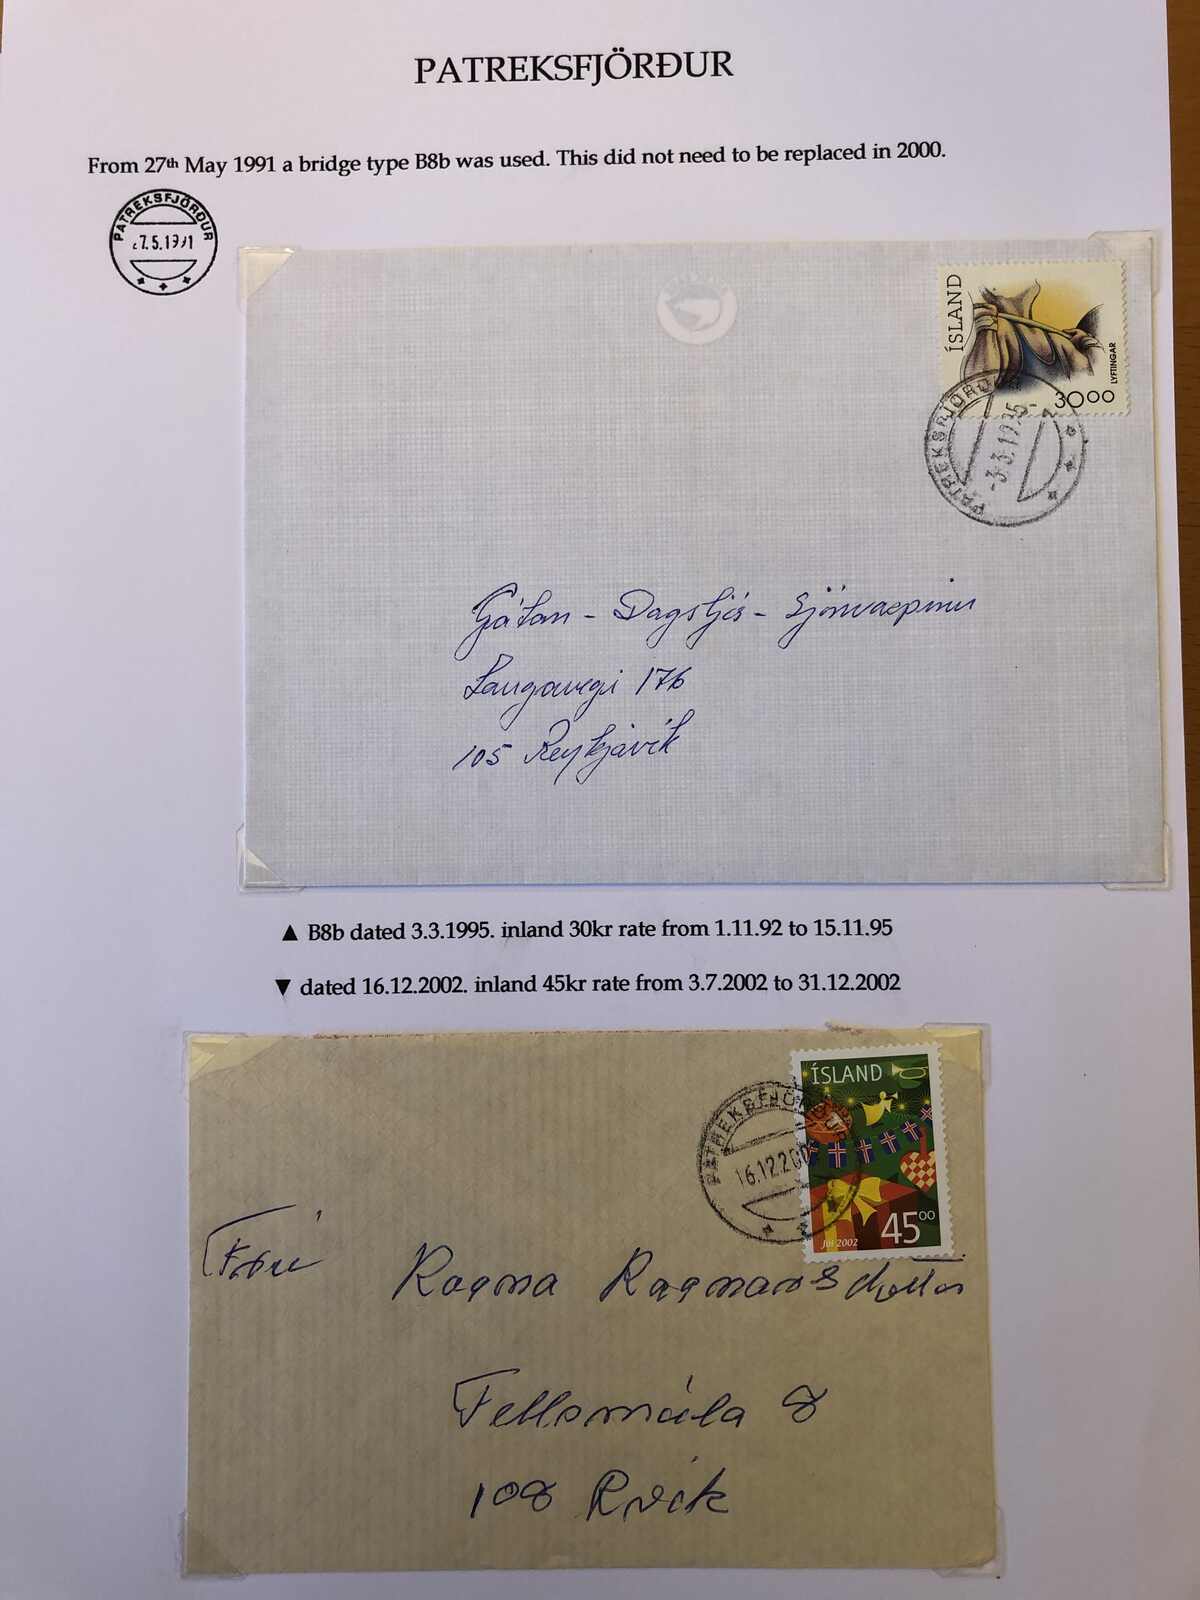 PATREKSFJÖRÐUR
From 27th May 1991 a bridge type B8b was used. This did not need to be replaced in 2000.
PATREKSFJÖRÐUR
7.5.1991
ÍSLAND
LYFTINGAR
3000
PATREKSFJÖRÐ
-3.3.1995-
Gátan - Dagsljós - Sjónvarpinu
Laugavegi 176
105 Reykjavík
▲ B8b dated 3.3.1995. inland 30kr rate from 1.11.92 to 15.11.95
▼ dated 16.12.2002. inland 45kr rate from 3.7.2002 to 31.12.2002
ÍSLAND
PATREKSFJÖRÐUR
16.12.200
Jól 2002
4500
Frú
Ragna Ragnarsdóttir
Fellsmúla 8
108 Rvík